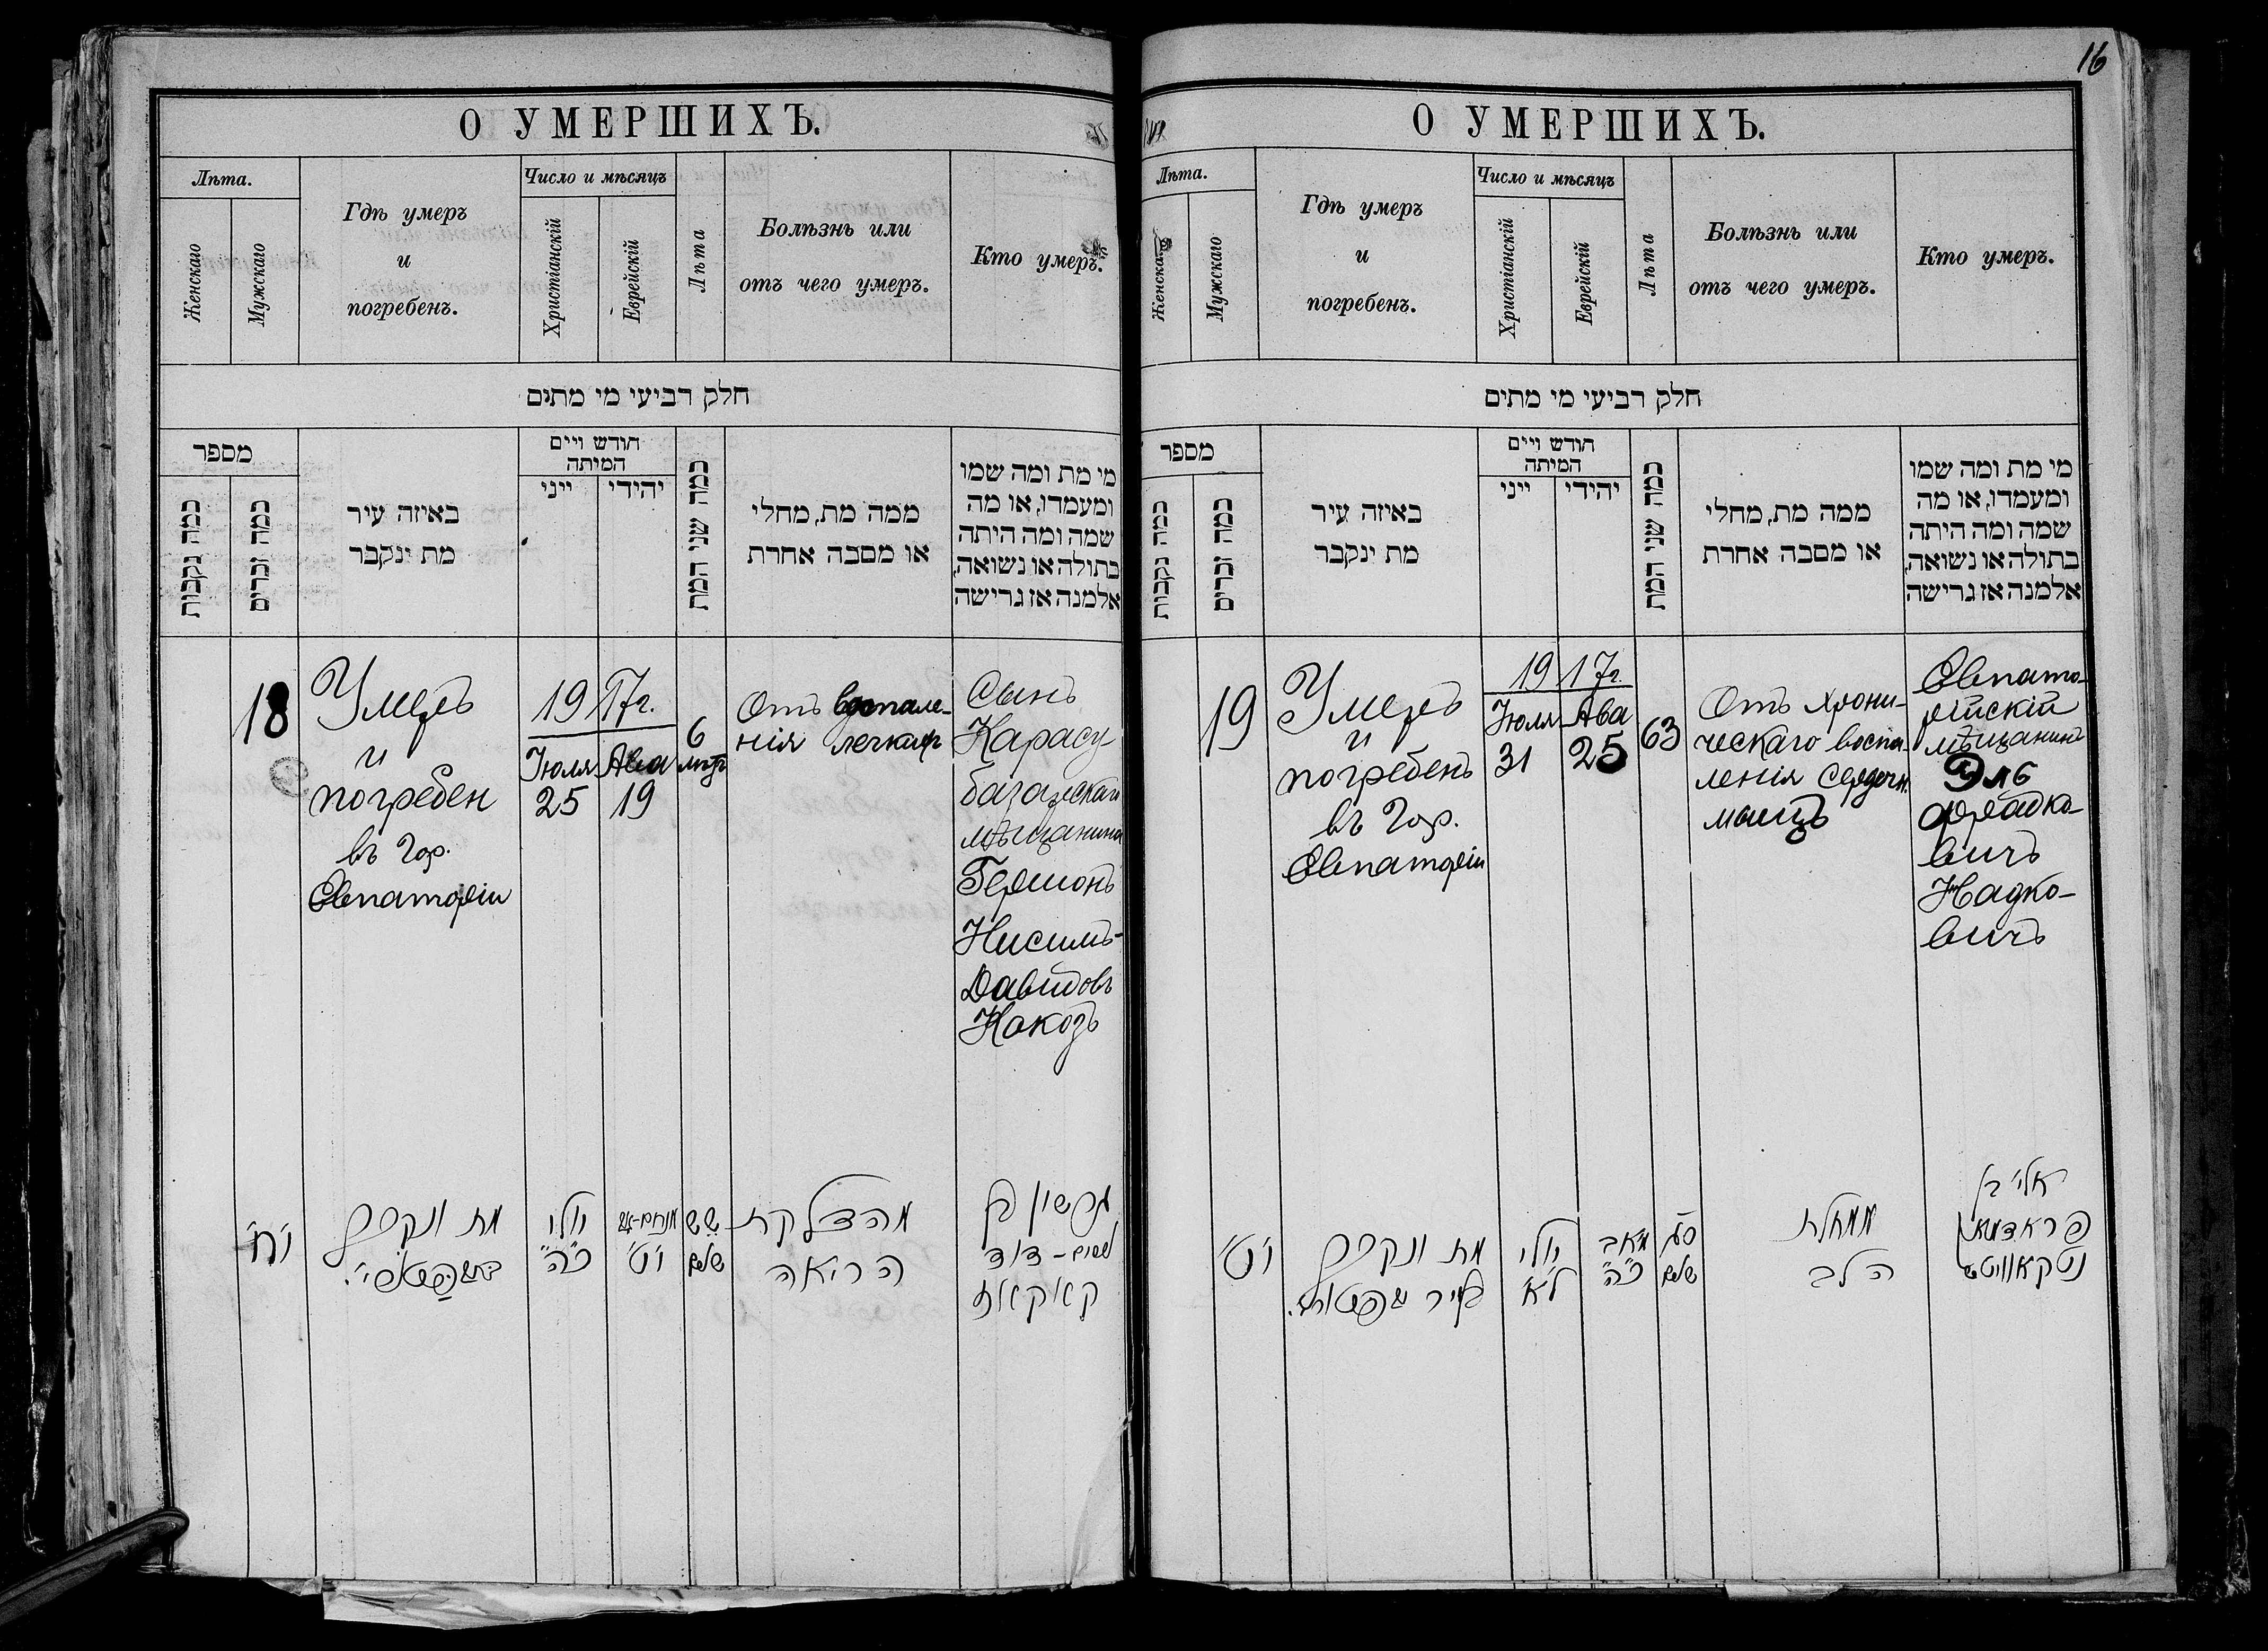 О УМЕРШИХЪ.
Лѣта.
Женскаго
Мужскаго
Гдѣ умеръ
и
погребенъ.
Число и мѣсяцъ
Христіанскій
Еврейскій
Лѣта
Болѣзнь или
отъ чего умеръ.
Кто умеръ.
חלק רביעי מי מתים
מספר
כמה נקבות
כמה זכרים
באיזה עיר
מת ינקבר
חודש ויים
המיתה
ייני
יהידי
כמה שני המת
ממה מת, מחלי
או מסבה אחרת
מי מת ומה שמו
ומעמדו, או מה
שמה ומה היתה
בתולה או נשואה,
אלמנה אז גרישה
18
Умеръ
и
погребен
въ гор.
Евпаторіи
1917г.
Іюля
25
Ава
19
6
Отъ воспале-
нія легкихъ
Сынъ
Карасу-
базарскаго
мѣщанина
Гершонъ
Нисимъ-
Давидовъ
Кокозъ
י״ח
מת ונקבר
יולי
כ״ה
י״ט
שש
מהדלקת
הריאה
גרשון בן
נסים-דוד
קאקאז
16
О УМЕРШИХЪ.
Лѣта.
Женскаго
Мужскаго
Гдѣ умеръ
и
погребенъ.
Число и мѣсяцъ
Христіанскій
Еврейскій
Лѣта
Болѣзнь или
отъ чего умеръ.
Кто умеръ.
חלק רביעי מי מתים
מספר
כמה נקבות
כמה זכרים
באיזה עיר
מת ינקבר
חודש ויים
המיתה
ייני
יהידי
כמה שני המת
ממה מת, מחלי
או מסבה אחרת
מי מת ומה שמו
ומעמדו, או מה
שמה ומה היתה
בתולה או נשואה,
אלמנה אז גרישה
19
Умеръ
и
погребенъ
въ гор.
Евпаторіи
1917г.
Іюля
31
Ава
25
63
Отъ хрони-
ческаго воспа-
ленія сердечн.
мышцъ
Евпато-
рійскій
мѣщанинъ
Фрадко-
вичъ
Надко-
вичъ
י״ט
מת ונקבר
בעיר
יולי
ל״א
כ״ה
ס״ג
ממחלת
הלב